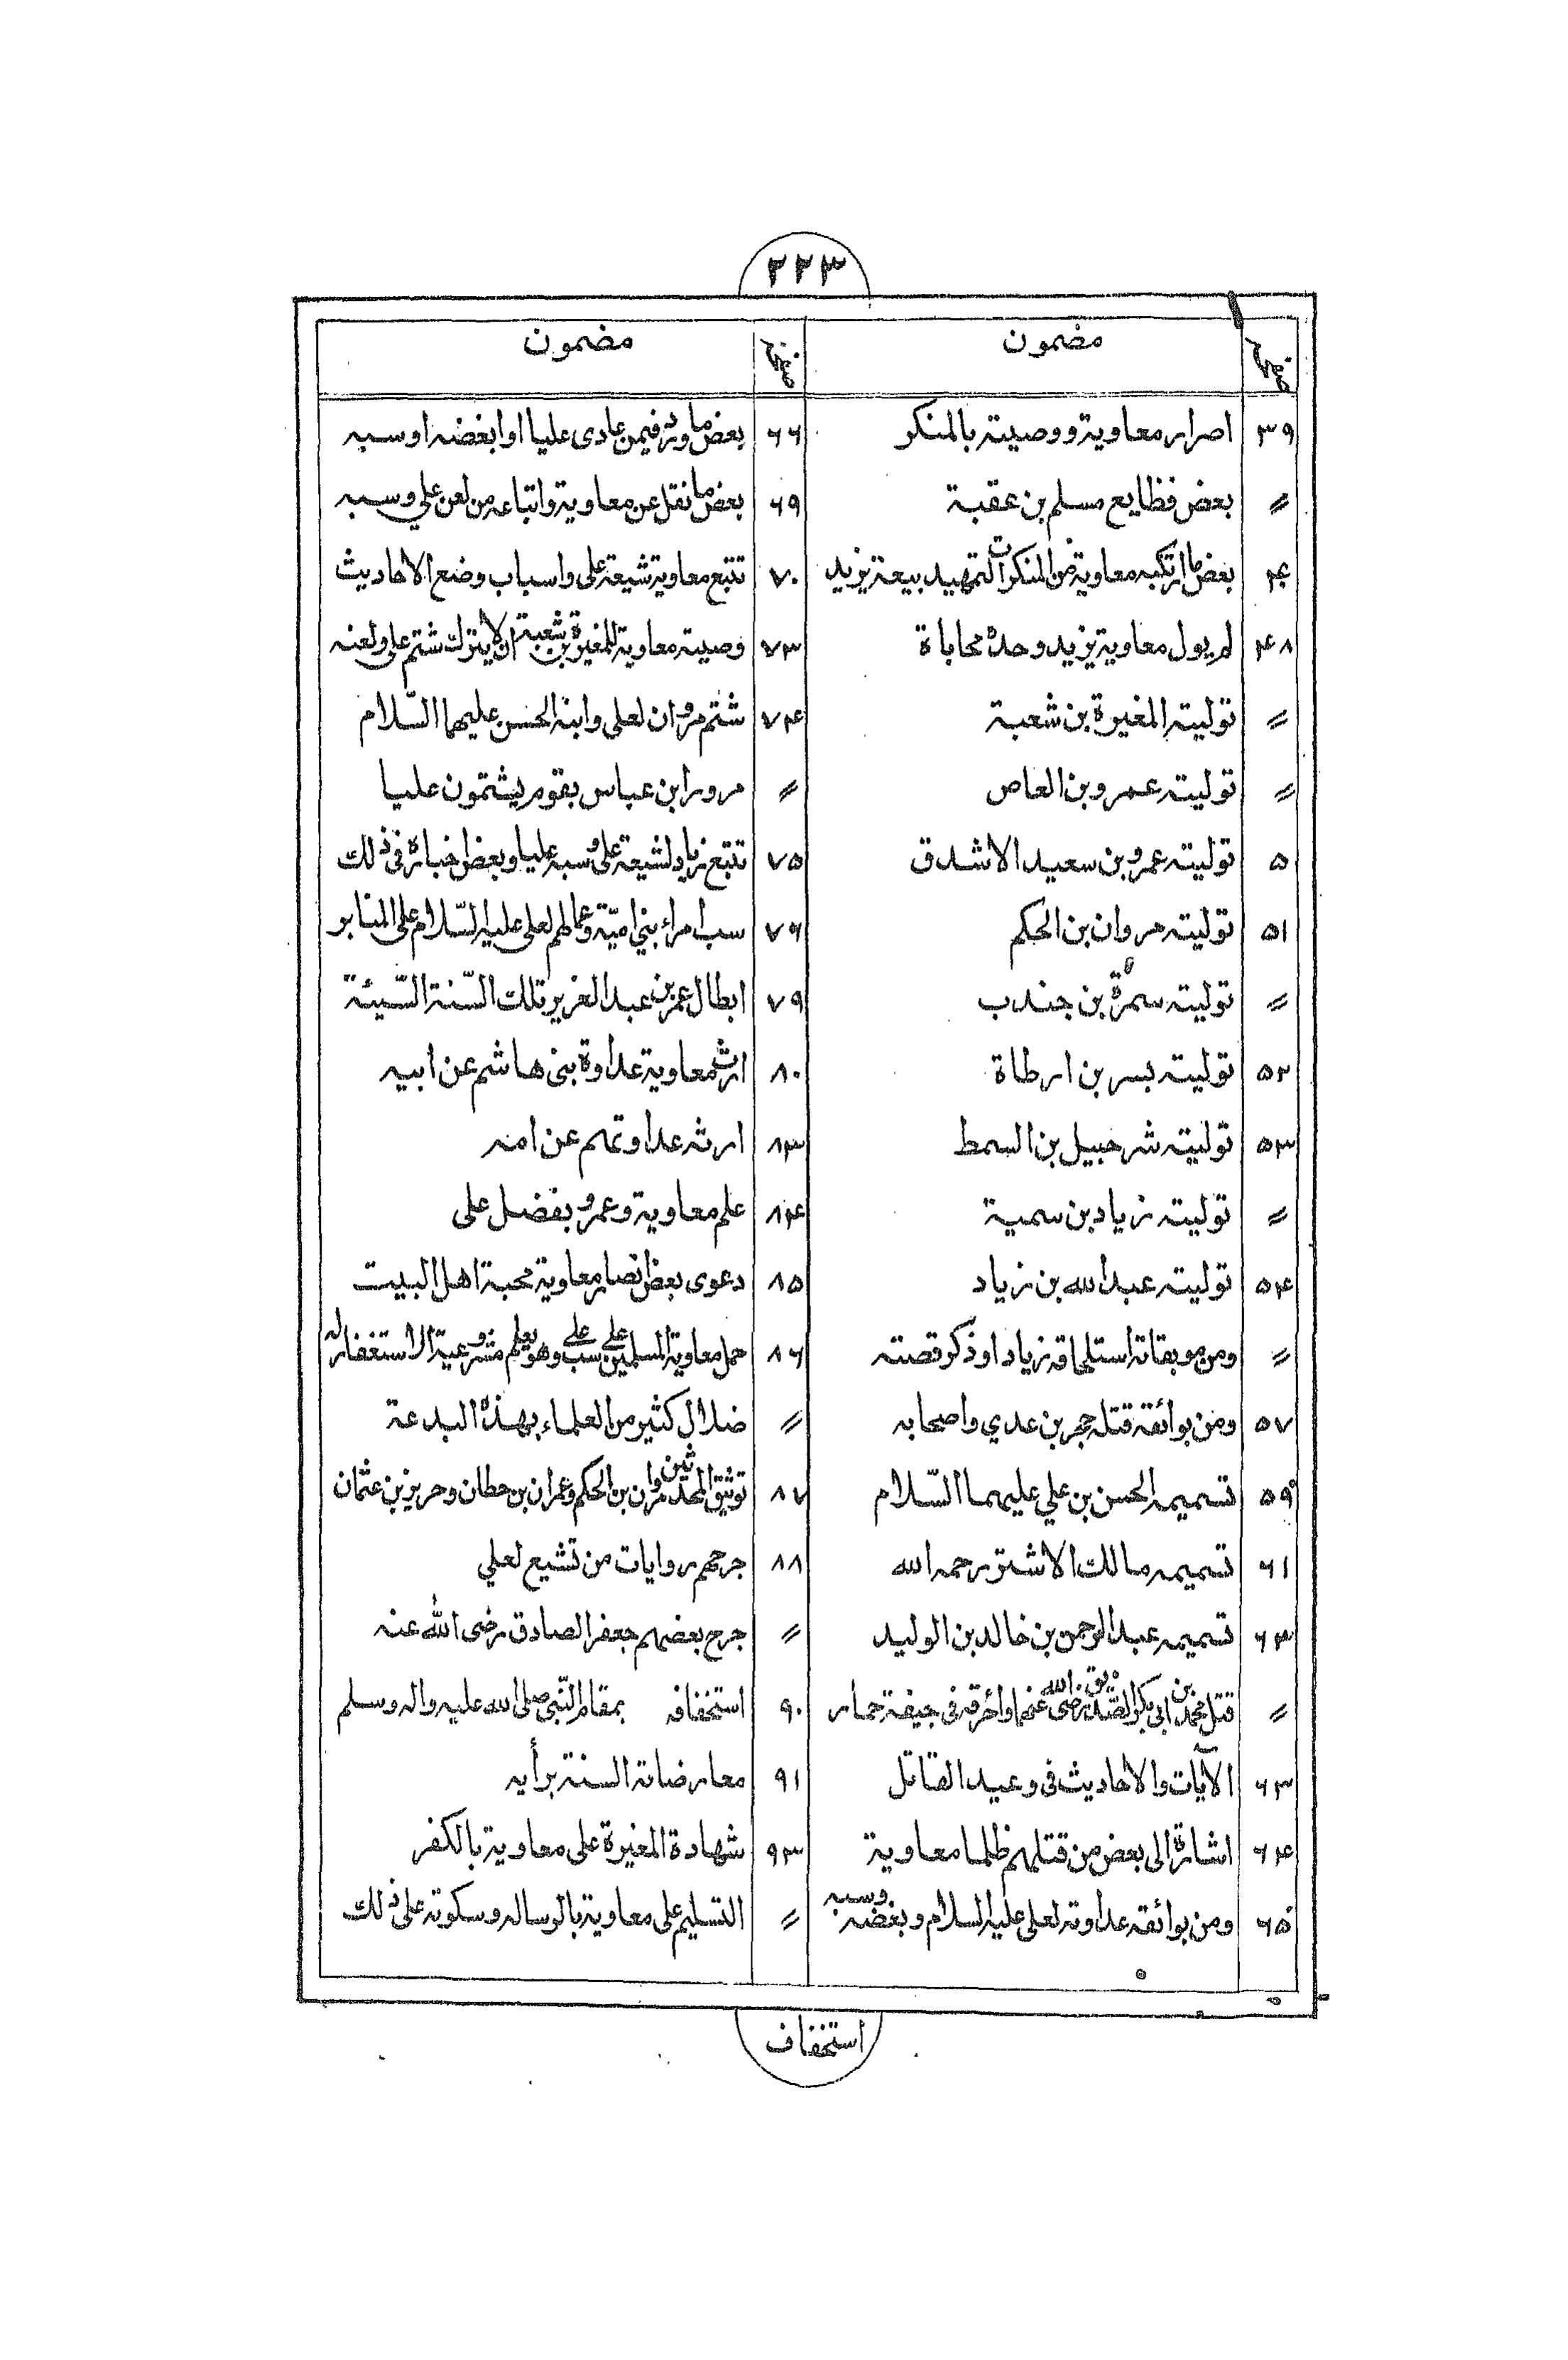 ٢٢٣
صفحہ مضمون
٣٩ اصرار معاوية ووصيته بالمنكر
〃 بعض فظايع مسلم بن عقبة
٤٠ بعض ما ارتكبه معاوية من المنكرات لتمهيد بيعة يزيد
٤٨ لم يول معاوية يزيد وحده محاباة
〃 توليته المغيرة بن شعبة
〃 توليته عمرو بن العاص
٥ توليته عمرو بن سعيد الاشدق
٥١ توليته مروان بن الحكم
〃 توليته سمرة بن جندب
٥٢ توليته بسر بن ارطاة
٥٣ توليته شرحبيل بن السمط
〃 توليته زياد بن سمية
٥٤ توليته عبد الله بن زياد
〃 ومن موبقاته استلحاقه زيادا وذكر قصته
٥٧ ومن بوائقه قتله حجر بن عدي واصحابه
٥٩ تسميمه الحسن بن علي عليهما السّلام
٦١ تسميمه مالك الاشتر رحمه الله
٦٣ تسميمه عبد الرحمن بن خالد بن الوليد
〃 قتل محمد بن ابي بكر الصّديق رضي الله عنهما واحرقه في جيفة حمار
٦٣ الآيات والاحاديث في وعيد القاتل
٦٤ اشارة الى بعض من قتلهم ظلما معاوية
٦٥ ومن بوائقه عداوته لعلي عليه السلام وبغضه وسبه
صفحہ مضمون
٦٦ بعض ما ورد فيمن عادى عليا او ابغضه او سبه
٦٩ بعض ما نقل عن معاوية واتباعه من لعن علي وسبه
٧٠ تتبع معاوية شيعة على واسباب وضع الاحاديث
٧٣ وصيته معاوية للمغيرة بن شعبة ان لا يترك شتم على ولعنه
٧٤ شتم مروان لعلى وابنه الحسن عليهما السّلام
〃 مرور ابن عباس بقوم يشتمون عليا
٧٥ تتبع زياد لشيعة على وسبه عليا وبعض اخباره في ذلك
٧٦ سب امراء بني اميّة وعمالهم لعلى عليه السّلام على المنابر
٧٩ ابطال عمر بن عبد العزيز تلك السّنة السّيئة
٨٠ ارث معاوية عداوة بنى هاشم عن ابيه
٨٣ ارثه عداوتهم عن امه
٨٤ علم معاوية وعمرو بفضل على
٨٥ دعوى بعض انصار معاوية محبة اهل البيت
٨٦ حمل معاوية المسلمين على سب علي وهو يعلم مشروعية الاستغفار له
〃 ضلال كثير من العلماء بهذه البدعة
٨٧ توثيق المحدثين مروان بن الحكم وعمران بن حطان وحريز بن عثمان
٨٨ جرحهم روايات من تشيع لعلي
〃 جرح بعضهم جعفر الصادق رضى الله عنه
٩٠ استخفافه بمقام النّبى صلى الله عليه واله وسلم
٩١ معارضاته السنة برأيه
٩٣ شهادة المغيرة على معاوية بالكفر
〃 التسليم على معاوية بالرسالة وسكوته على ذلك
استخفاف